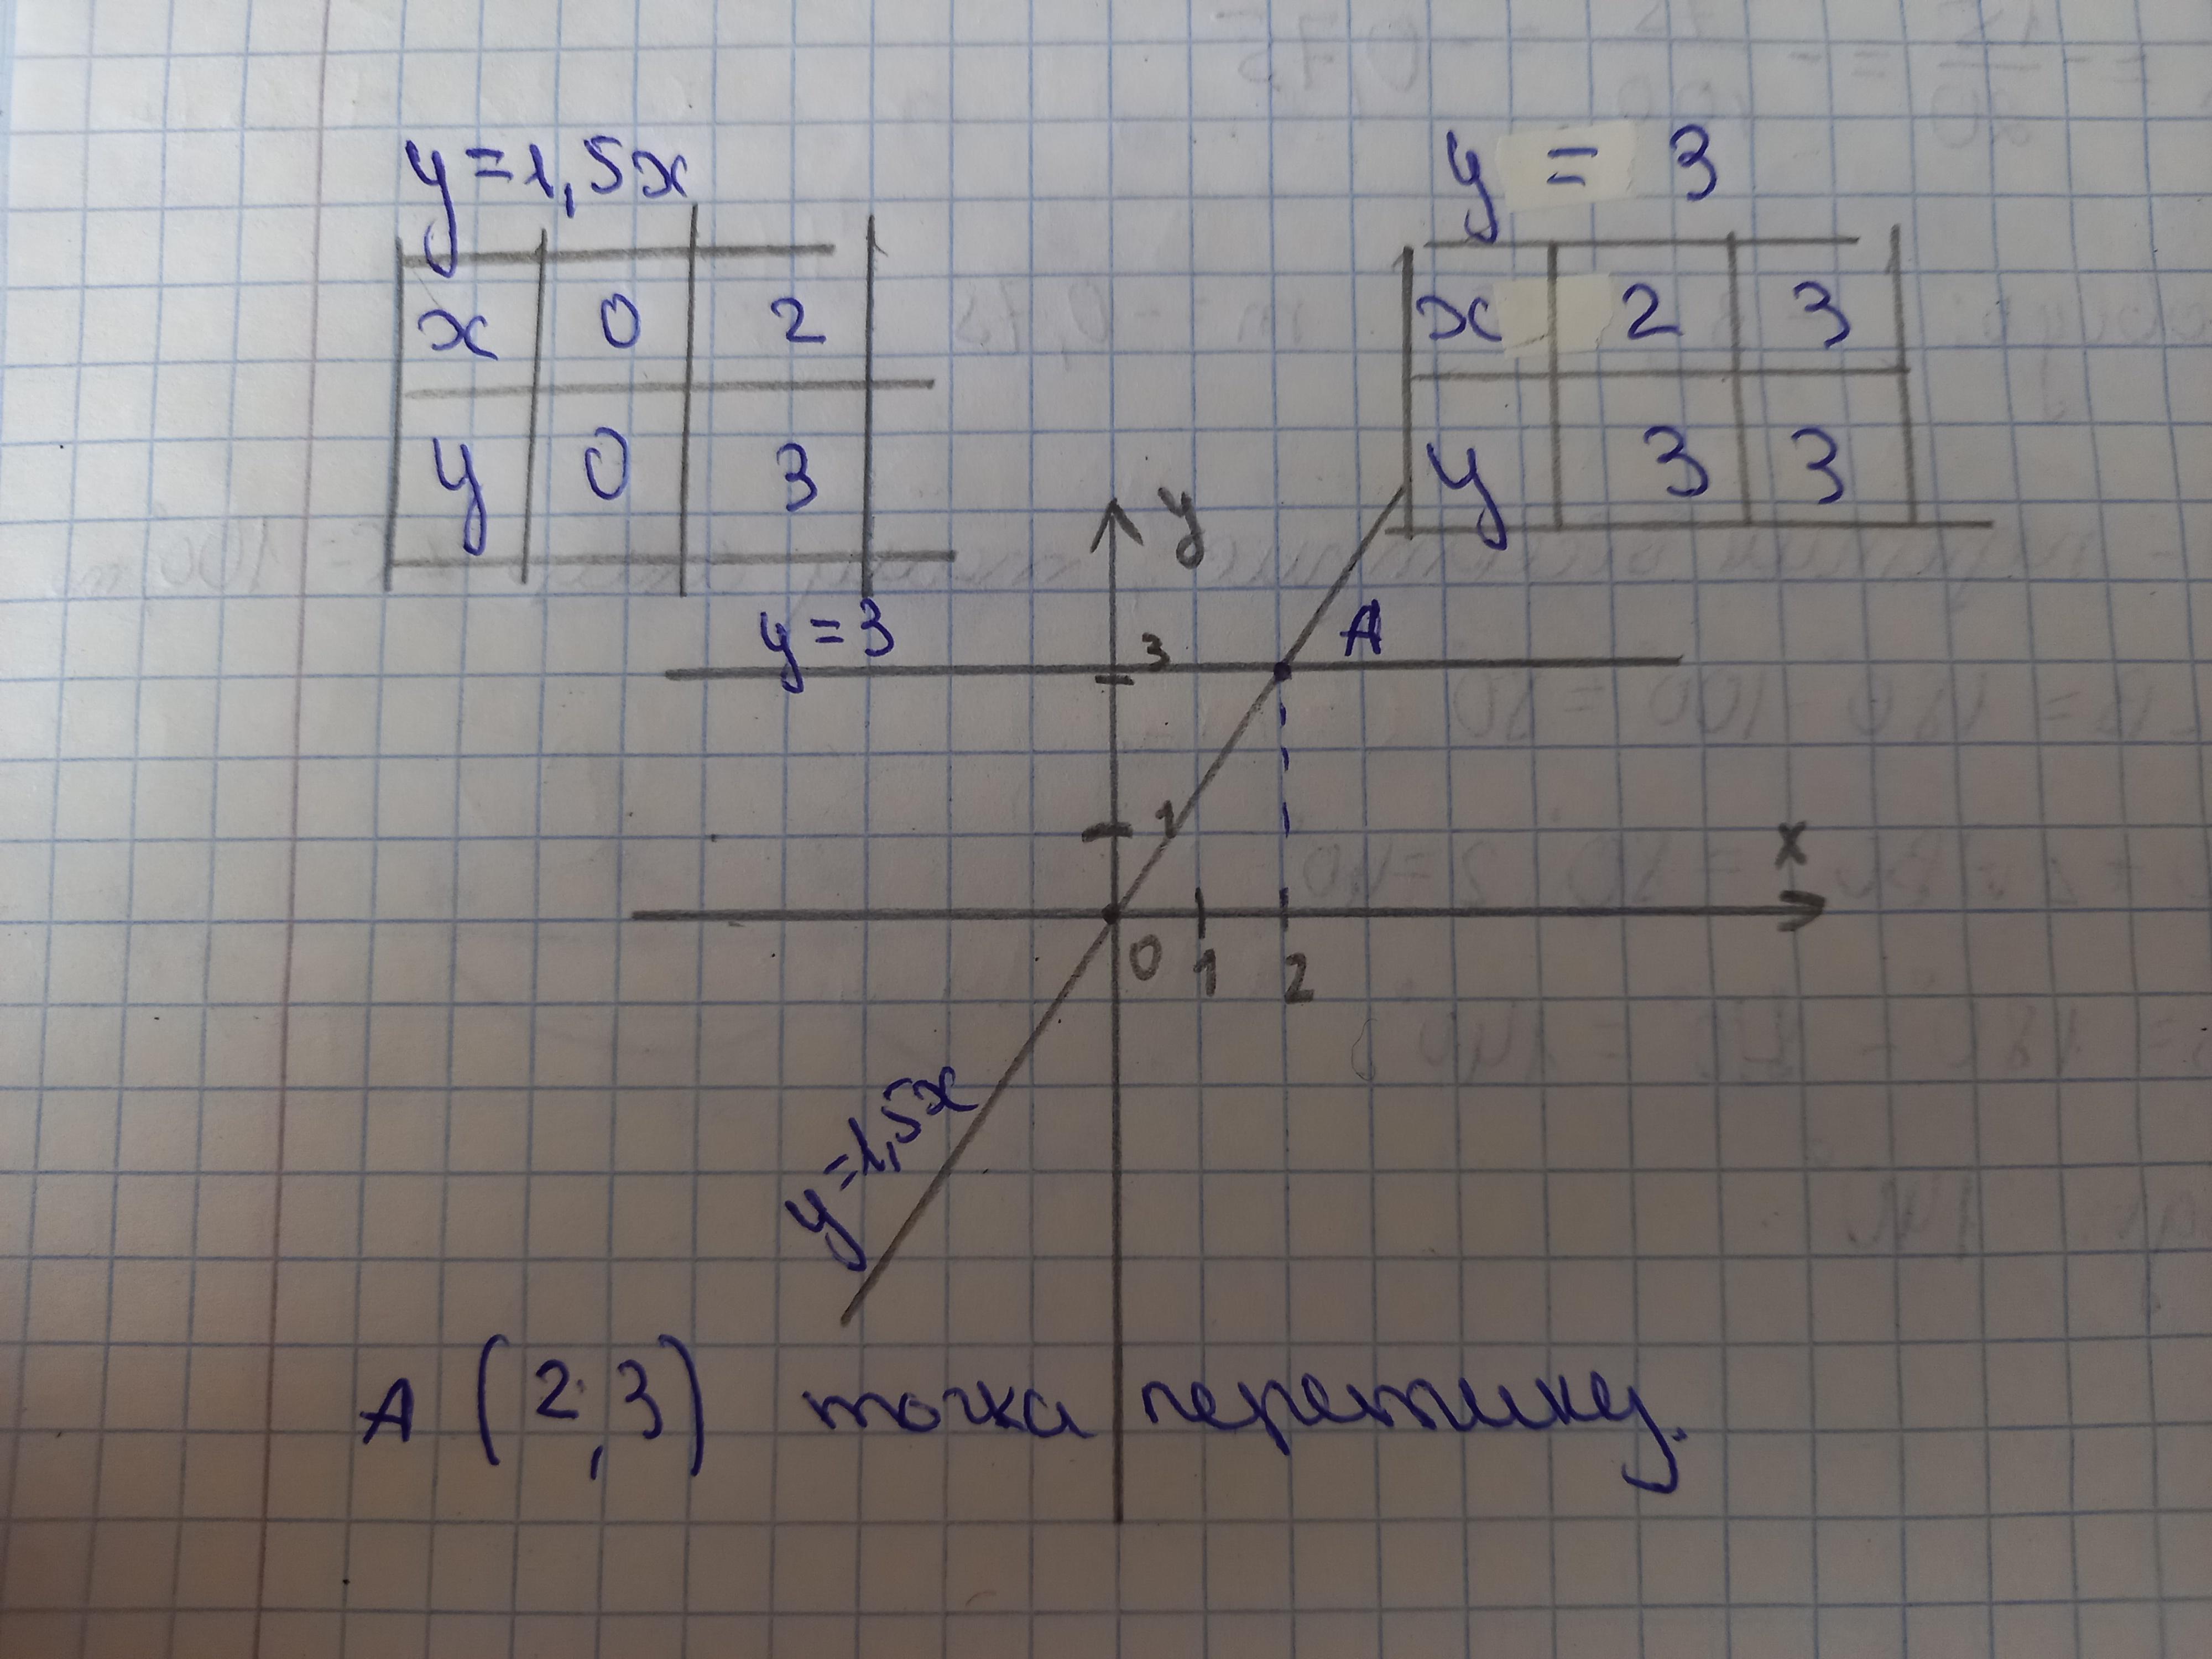 y=1,5x
x 0 2
y 0 3
y = 3
x 2 3
y 3 3
y
y=3
3
A
1
x
0 1 2
y=1,5x
A (2;3) точка перетину.